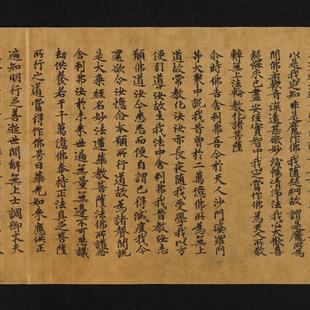 以是我定知 非是魔作佛 我墮疑網故 謂是魔所為
聞佛柔軟音 深遠甚微妙 演暢清淨法 我心大歡喜
疑悔永已盡 安住實智中 我定當作佛 為天人所敬
轉無上法輪 教化諸菩薩
尒時佛告舍利弗吾今於天人沙門婆羅門
等大衆中說我昔曾於二萬億佛所為無上
道故常教化汝汝亦長夜隨我受學我以方
便引導汝故生我法中舍利弗我昔教汝志
願佛道汝今悉忘而便自謂已得滅度我今
還欲令汝憶念本願所行道故為諸聲聞說
是大乘經名妙法蓮華教菩薩法佛所護念
舍利弗汝於未來世過無量無邊不可思議
劫供養若干千萬億佛奉持正法具足菩薩
所行之道當得作佛号曰華光如來應供正
遍知明行足善逝世間解無上士調御丈夫